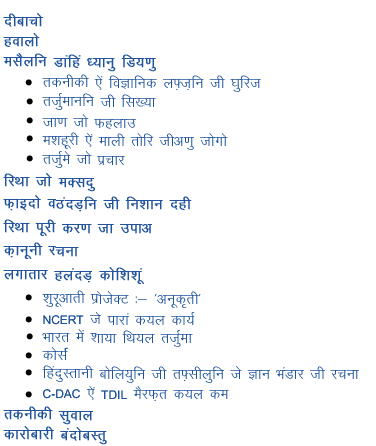 दीबाचो
हवालो
मसैलनि डांहिं ध्यानु डियणु
तकनीकी ऐं विज्ञानिक लफ़्ज़नि जी घुरिज
तर्जुमाननि जी सिख्या
जाण जो फहलाउ
मशहूरी ऐं माली तोरि जीअणु जोगो
तर्जुमे जो प्रचार
रिथा जो मक्सदु
फ़ाइदो वठंदड़नि जी निशान दही
रिथा पूरी करण जा उपाअ
क़ानूनी रचना
लगातार हलंदड़ कोशिशूं
शुरूआती प्रोजेक्ट :– 'अनूकृती'
NCERT जे पारां कयल कार्य
भारत में शाया थियल तर्जुमा
कोर्स
हिंदुस्तानी बोलियुनि जी तफ़्सीलुनि जे ज्ञान भंडार जी रचना
C-DAC ऐं TDIL मैरफ़त कयल कम
तकनीकी सुवाल
कारोबारी बंदोबस्तु